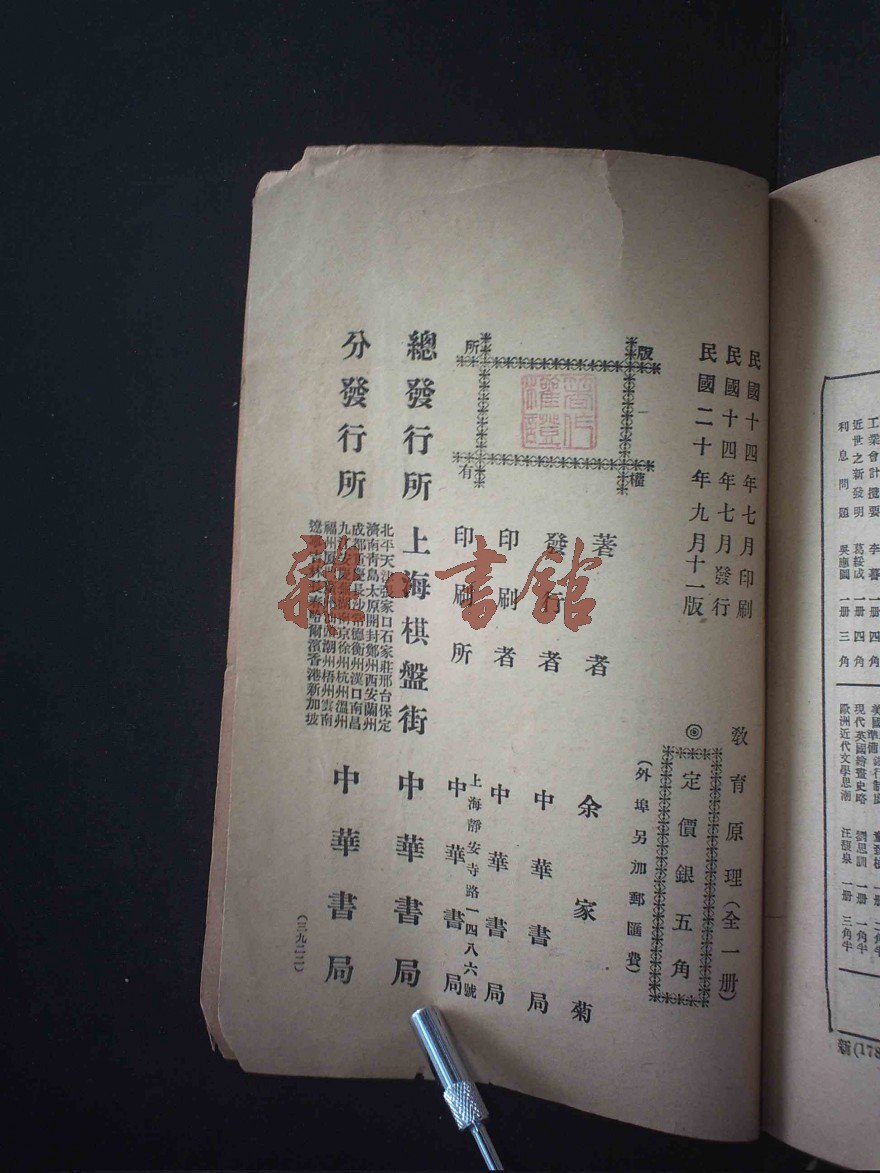 民國十四年七月印刷
民國十四年七月發行
民國二十年九月十一版
教育原理(全一册)
◎定價銀五角
(外埠另加郵匯費)
版權所有
著作權證
著者 余家菊
發行者 中華書局
印刷者 中華書局
上海靜安寺路一四八六號
印刷所 中華書局
總發行所 上海棋盤街 中華書局
分發行所 中華書局
北平天津張家口石家莊邢台保定
濟南青島太原開封鄭州西安蘭州
成都重慶長沙常德衡州漢口南昌
南京徐州杭州溫州
潮州梧州雲南
哈爾濱香港新加坡
(三九二二)
雜·書館
工業會計攬要 李 一册 四角
近世之新發明 葛綏成 一册 四角
利息問題 吳應圖 一册 三角
現代英國繪畫史略 劉思訓 一册 一角半
歐洲近代文學思潮 汪馥泉 一册 三角半
新(178